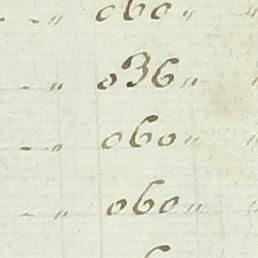 - - " 060 " "
- " 036 " "
- " 060 " "
- " 060 " "